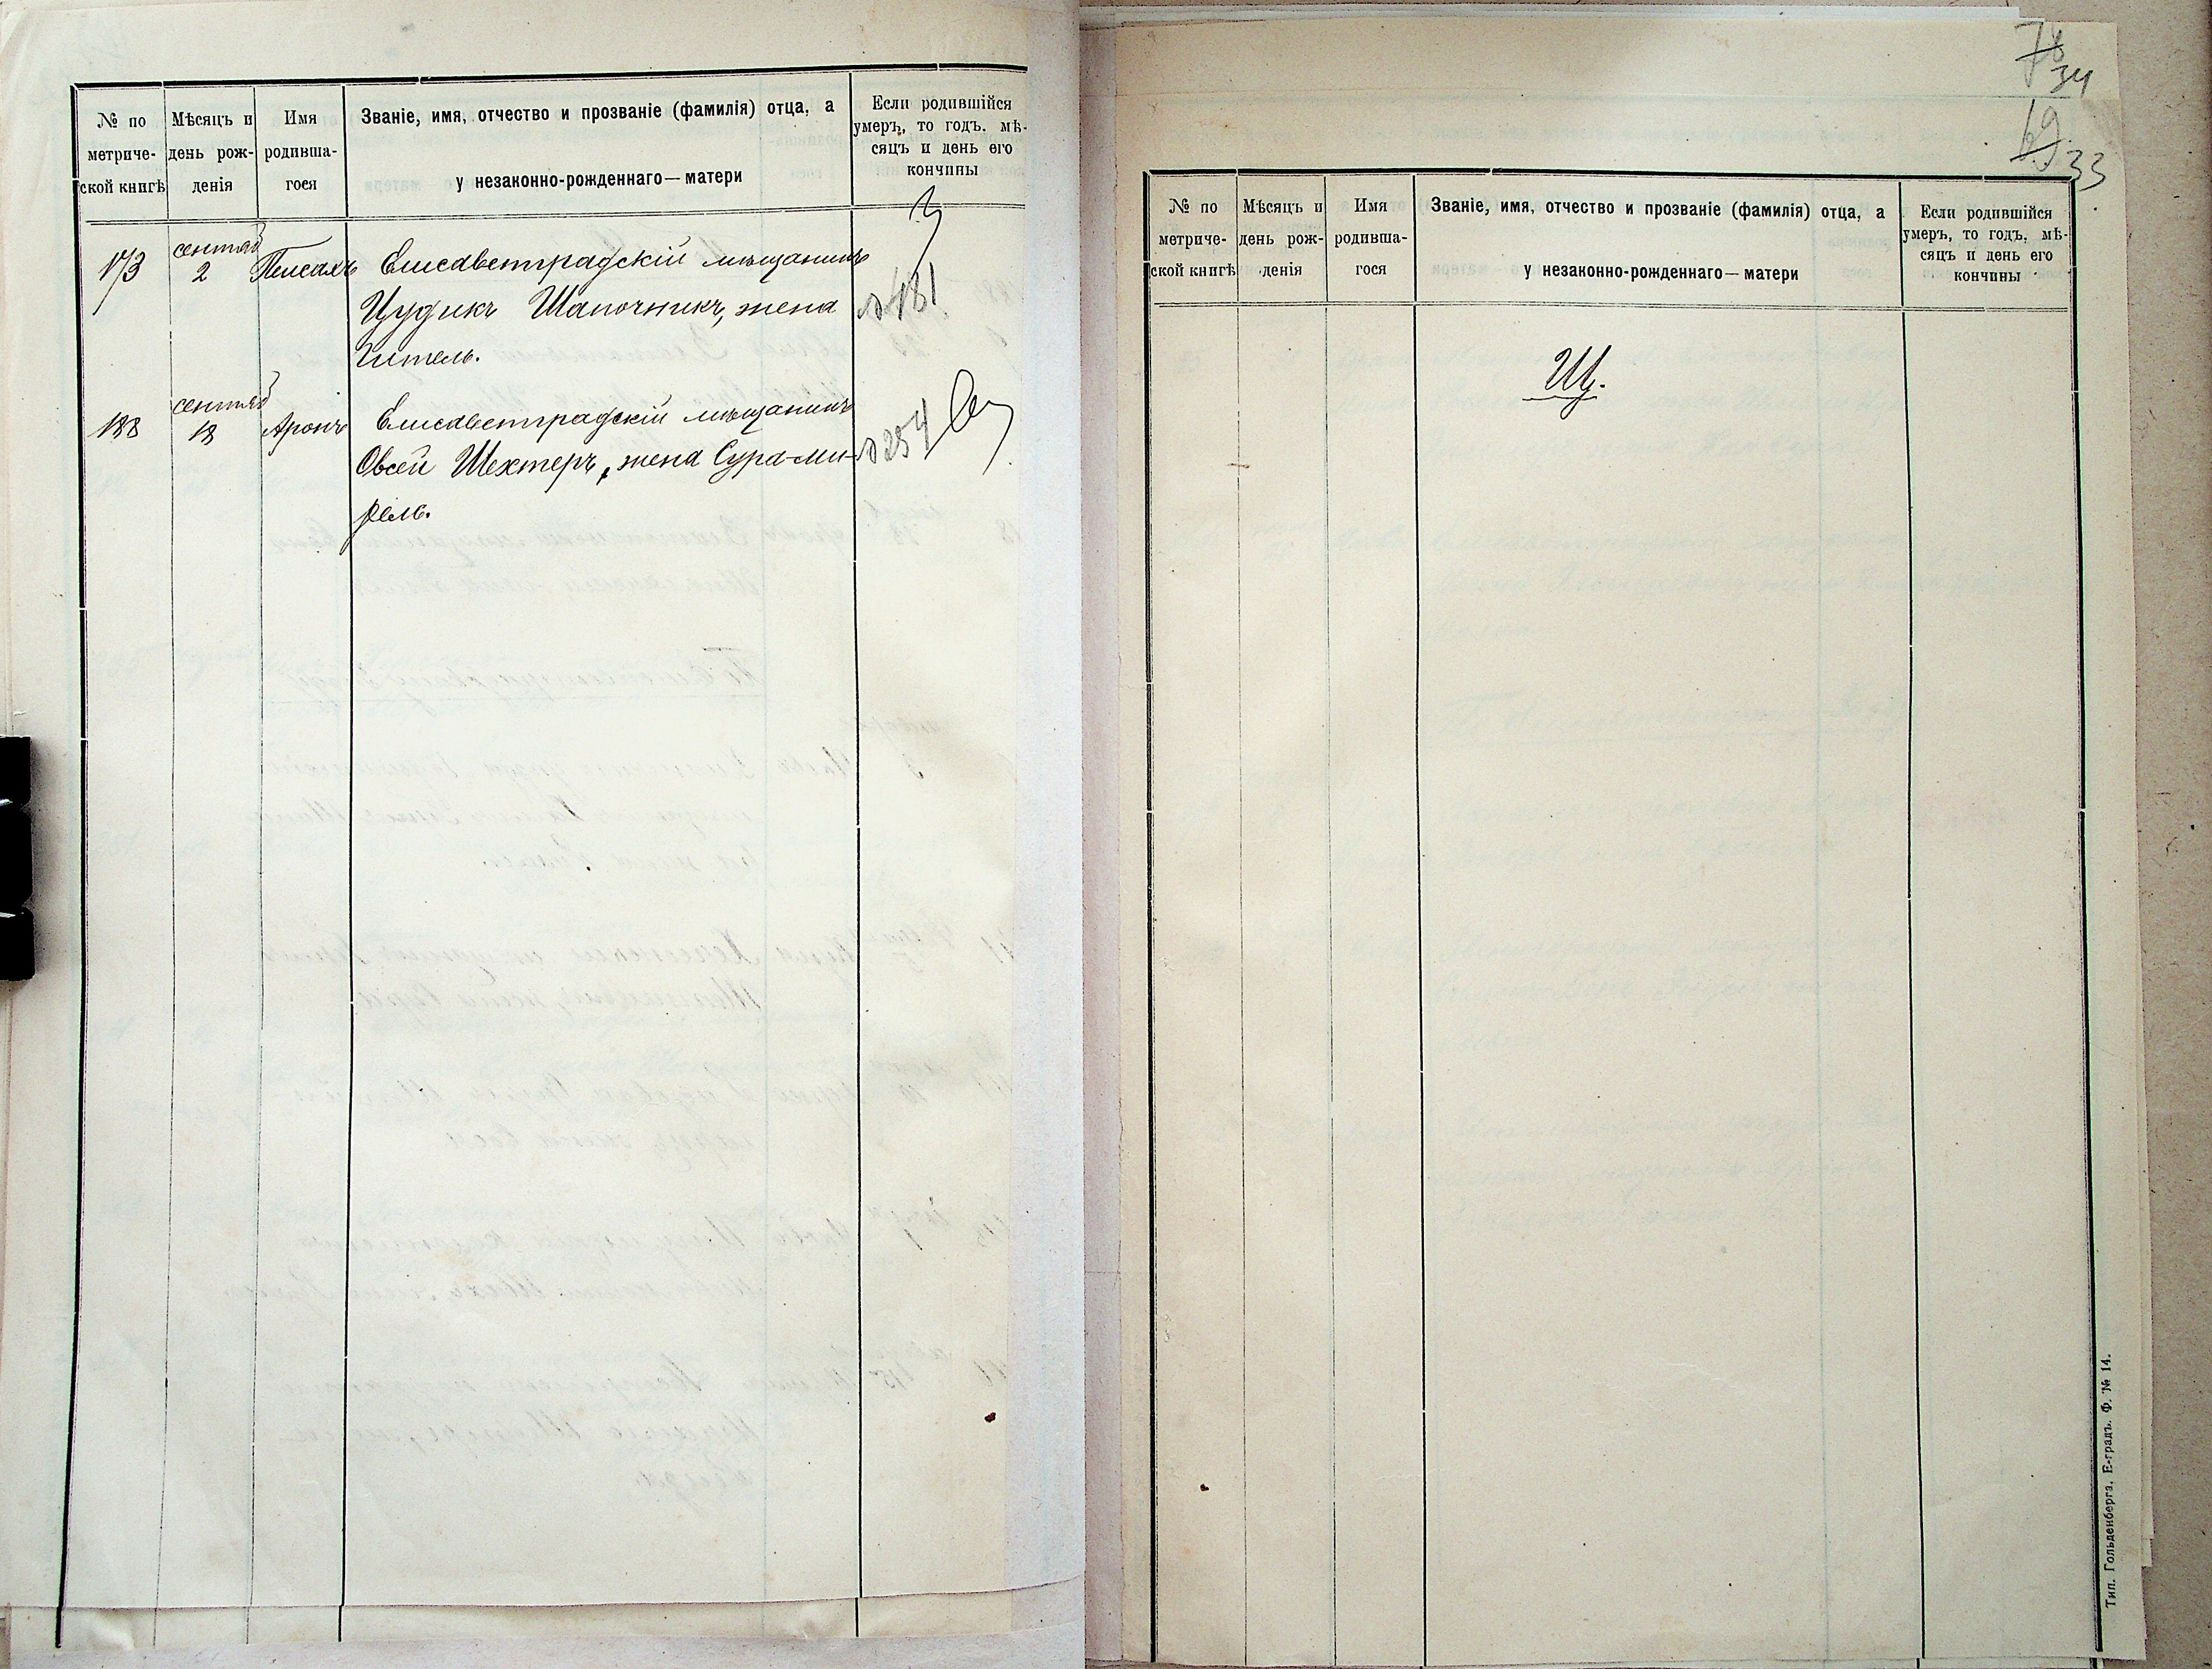 № по метриче- ской книгѣ
Мѣсяцъ и день рож- денія
Имя родивша- гося
Званіе, имя, отчество и прозваніе (фамилія) отца, а
у незаконно-рожденнаго — матери
Если родившійся
умеръ, то годъ, мѣ-
сяцъ и день его
кончины
173 сентяб 2 Пейсахъ Елисаветградскій мѣщанинъ
Цудикъ Шапочникъ, жена
Гитель.
№ 481
188 сентяб 18 Аронъ Елисаветградскій мѣщанинъ
Овсей Шехтеръ, жена Сура-Ми-
рель.
№ 254
34
69
33
№ по метриче- ской книгѣ
Мѣсяцъ и день рож- денія
Имя родивша- гося
Званіе, имя, отчество и прозваніе (фамилія) отца, а
у незаконно-рожденнаго — матери
Если родившійся
умеръ, то годъ, мѣ-
сяцъ и день его
кончины
Щ.
Тип. Гольденберга, Е-градъ. Ф. № 14.